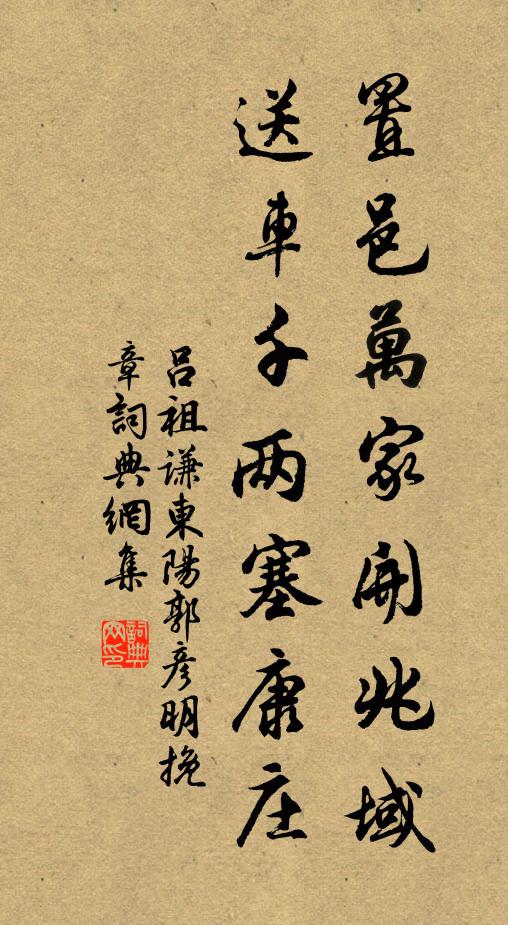 置邑萬家開兆域
送車千两塞康庄
呂祖謙東陽郭彦明挽
章詞典網集
詞典網印